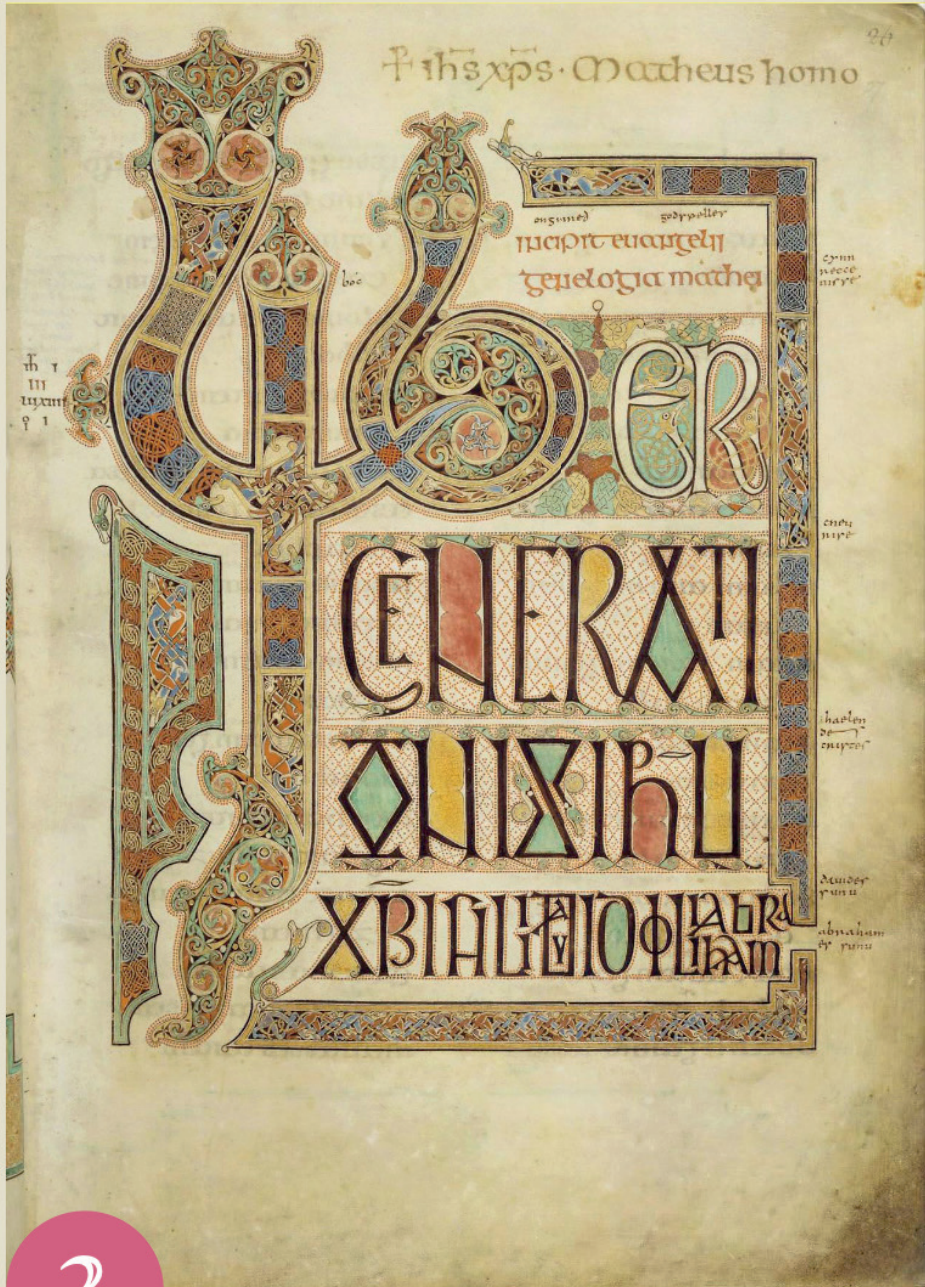 + ihs xps · Matheus homo
onginneð godspelles
incipit euangelii
genelogia mathei
boc
LIBER
GENERATI
ONIS IHU
XPI FILII DAUID FILII ABRA
HAM
cynn
recce
nisse
cneu
nise
haelen
de
cristes
dauides
sunu
abraham
es sunu
2